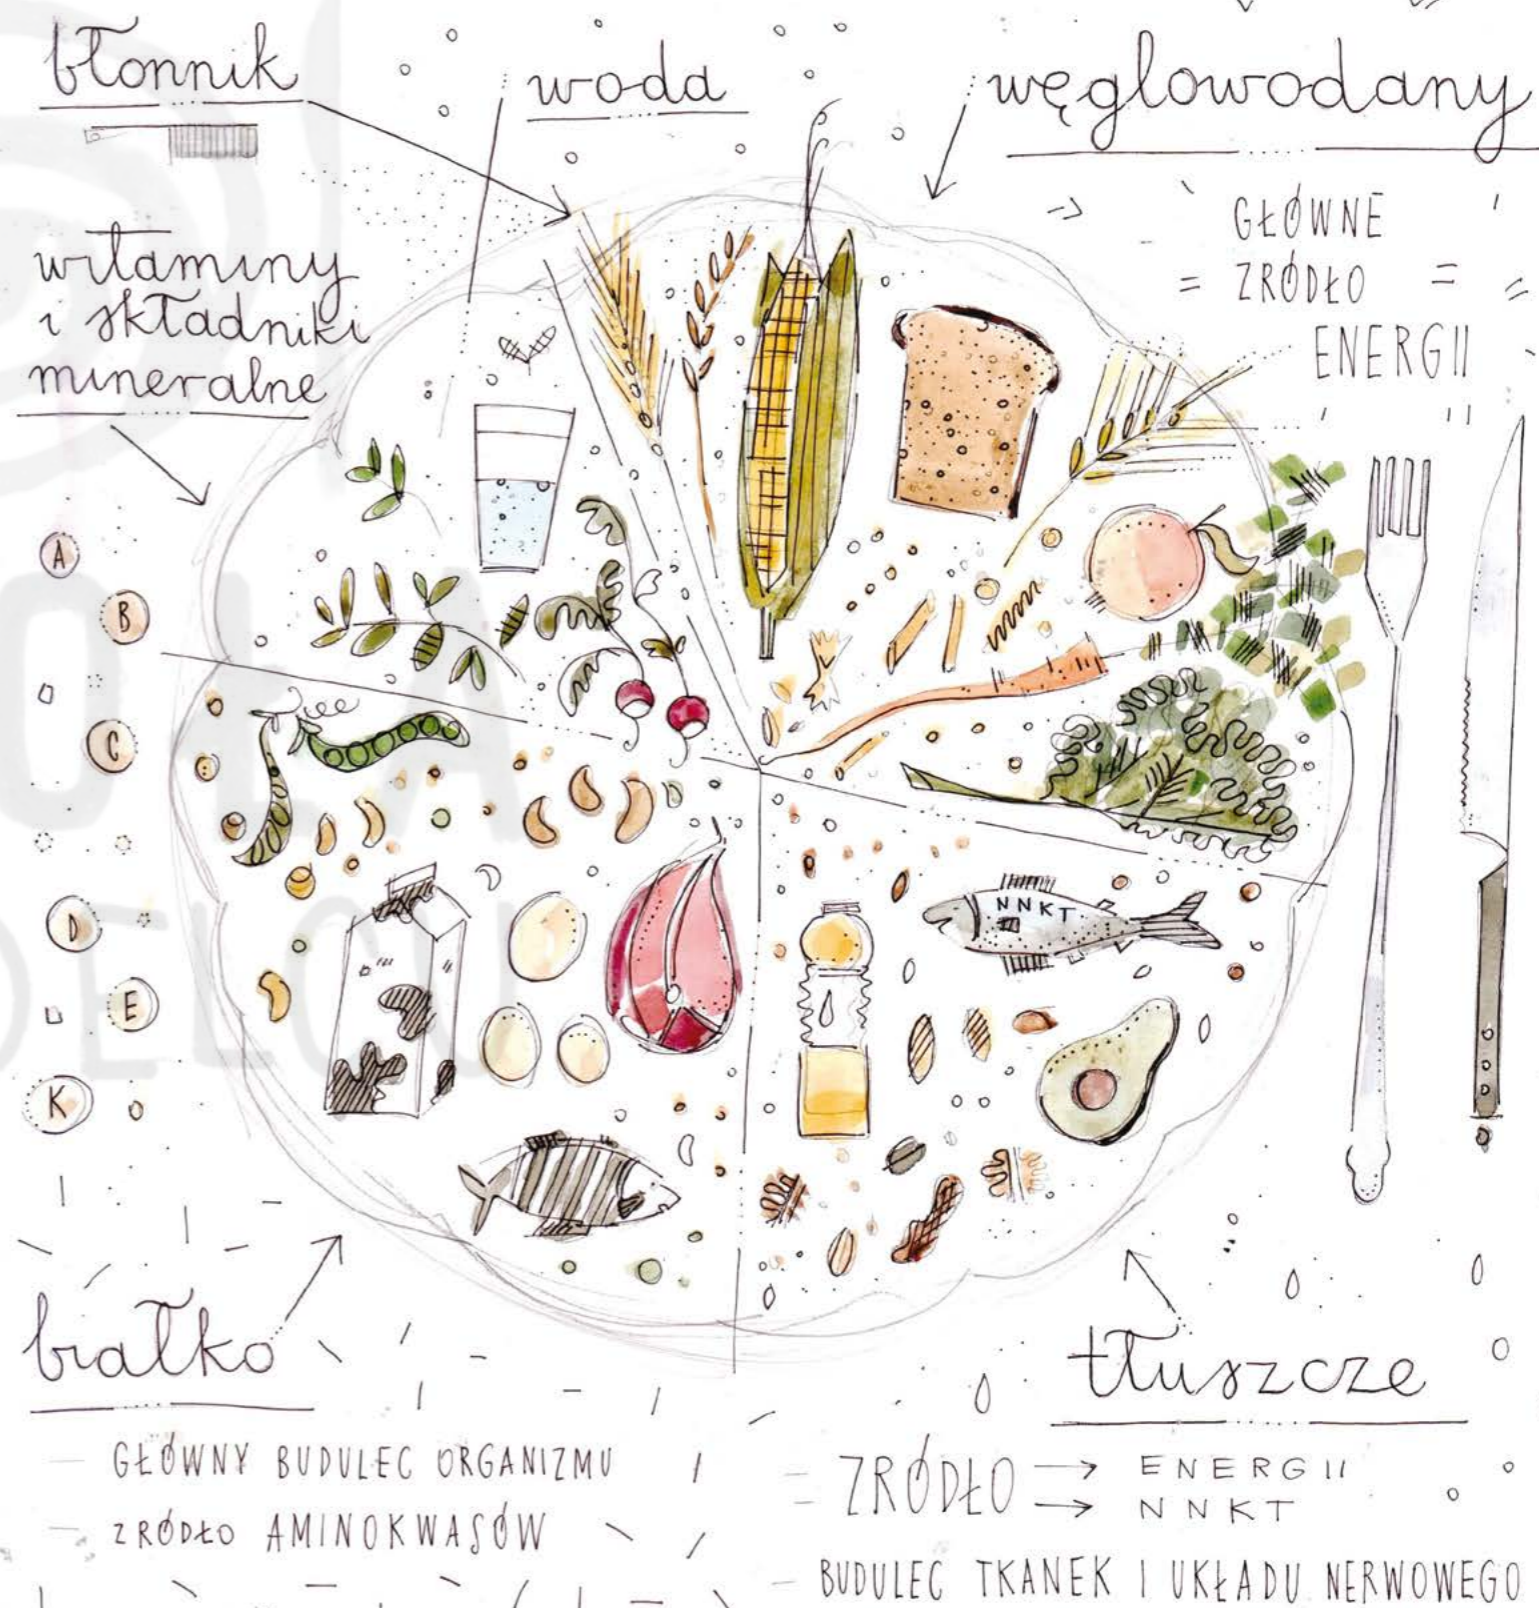 błonnik
woda
węglowodany
GŁÓWNE
ZRÓDŁO
ENERGII
witaminy
i składniki
mineralne
A
B
C
D
E
K
NNKT
białko
GŁÓWNY BUDULEC ORGANIZMU
ZRÓDŁO AMINOKWASÓW
tłuszcze
ZRÓDŁO → ENERGII
→ NNKT
BUDULEC TKANEK I UKŁADU NERWOWEGO